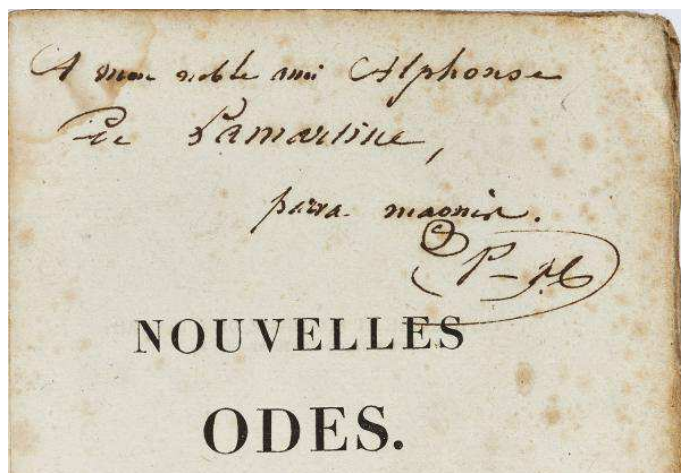 A mon noble ami Alphonse
De Lamartine,
parva magnis.
NOUVELLES
ODES.